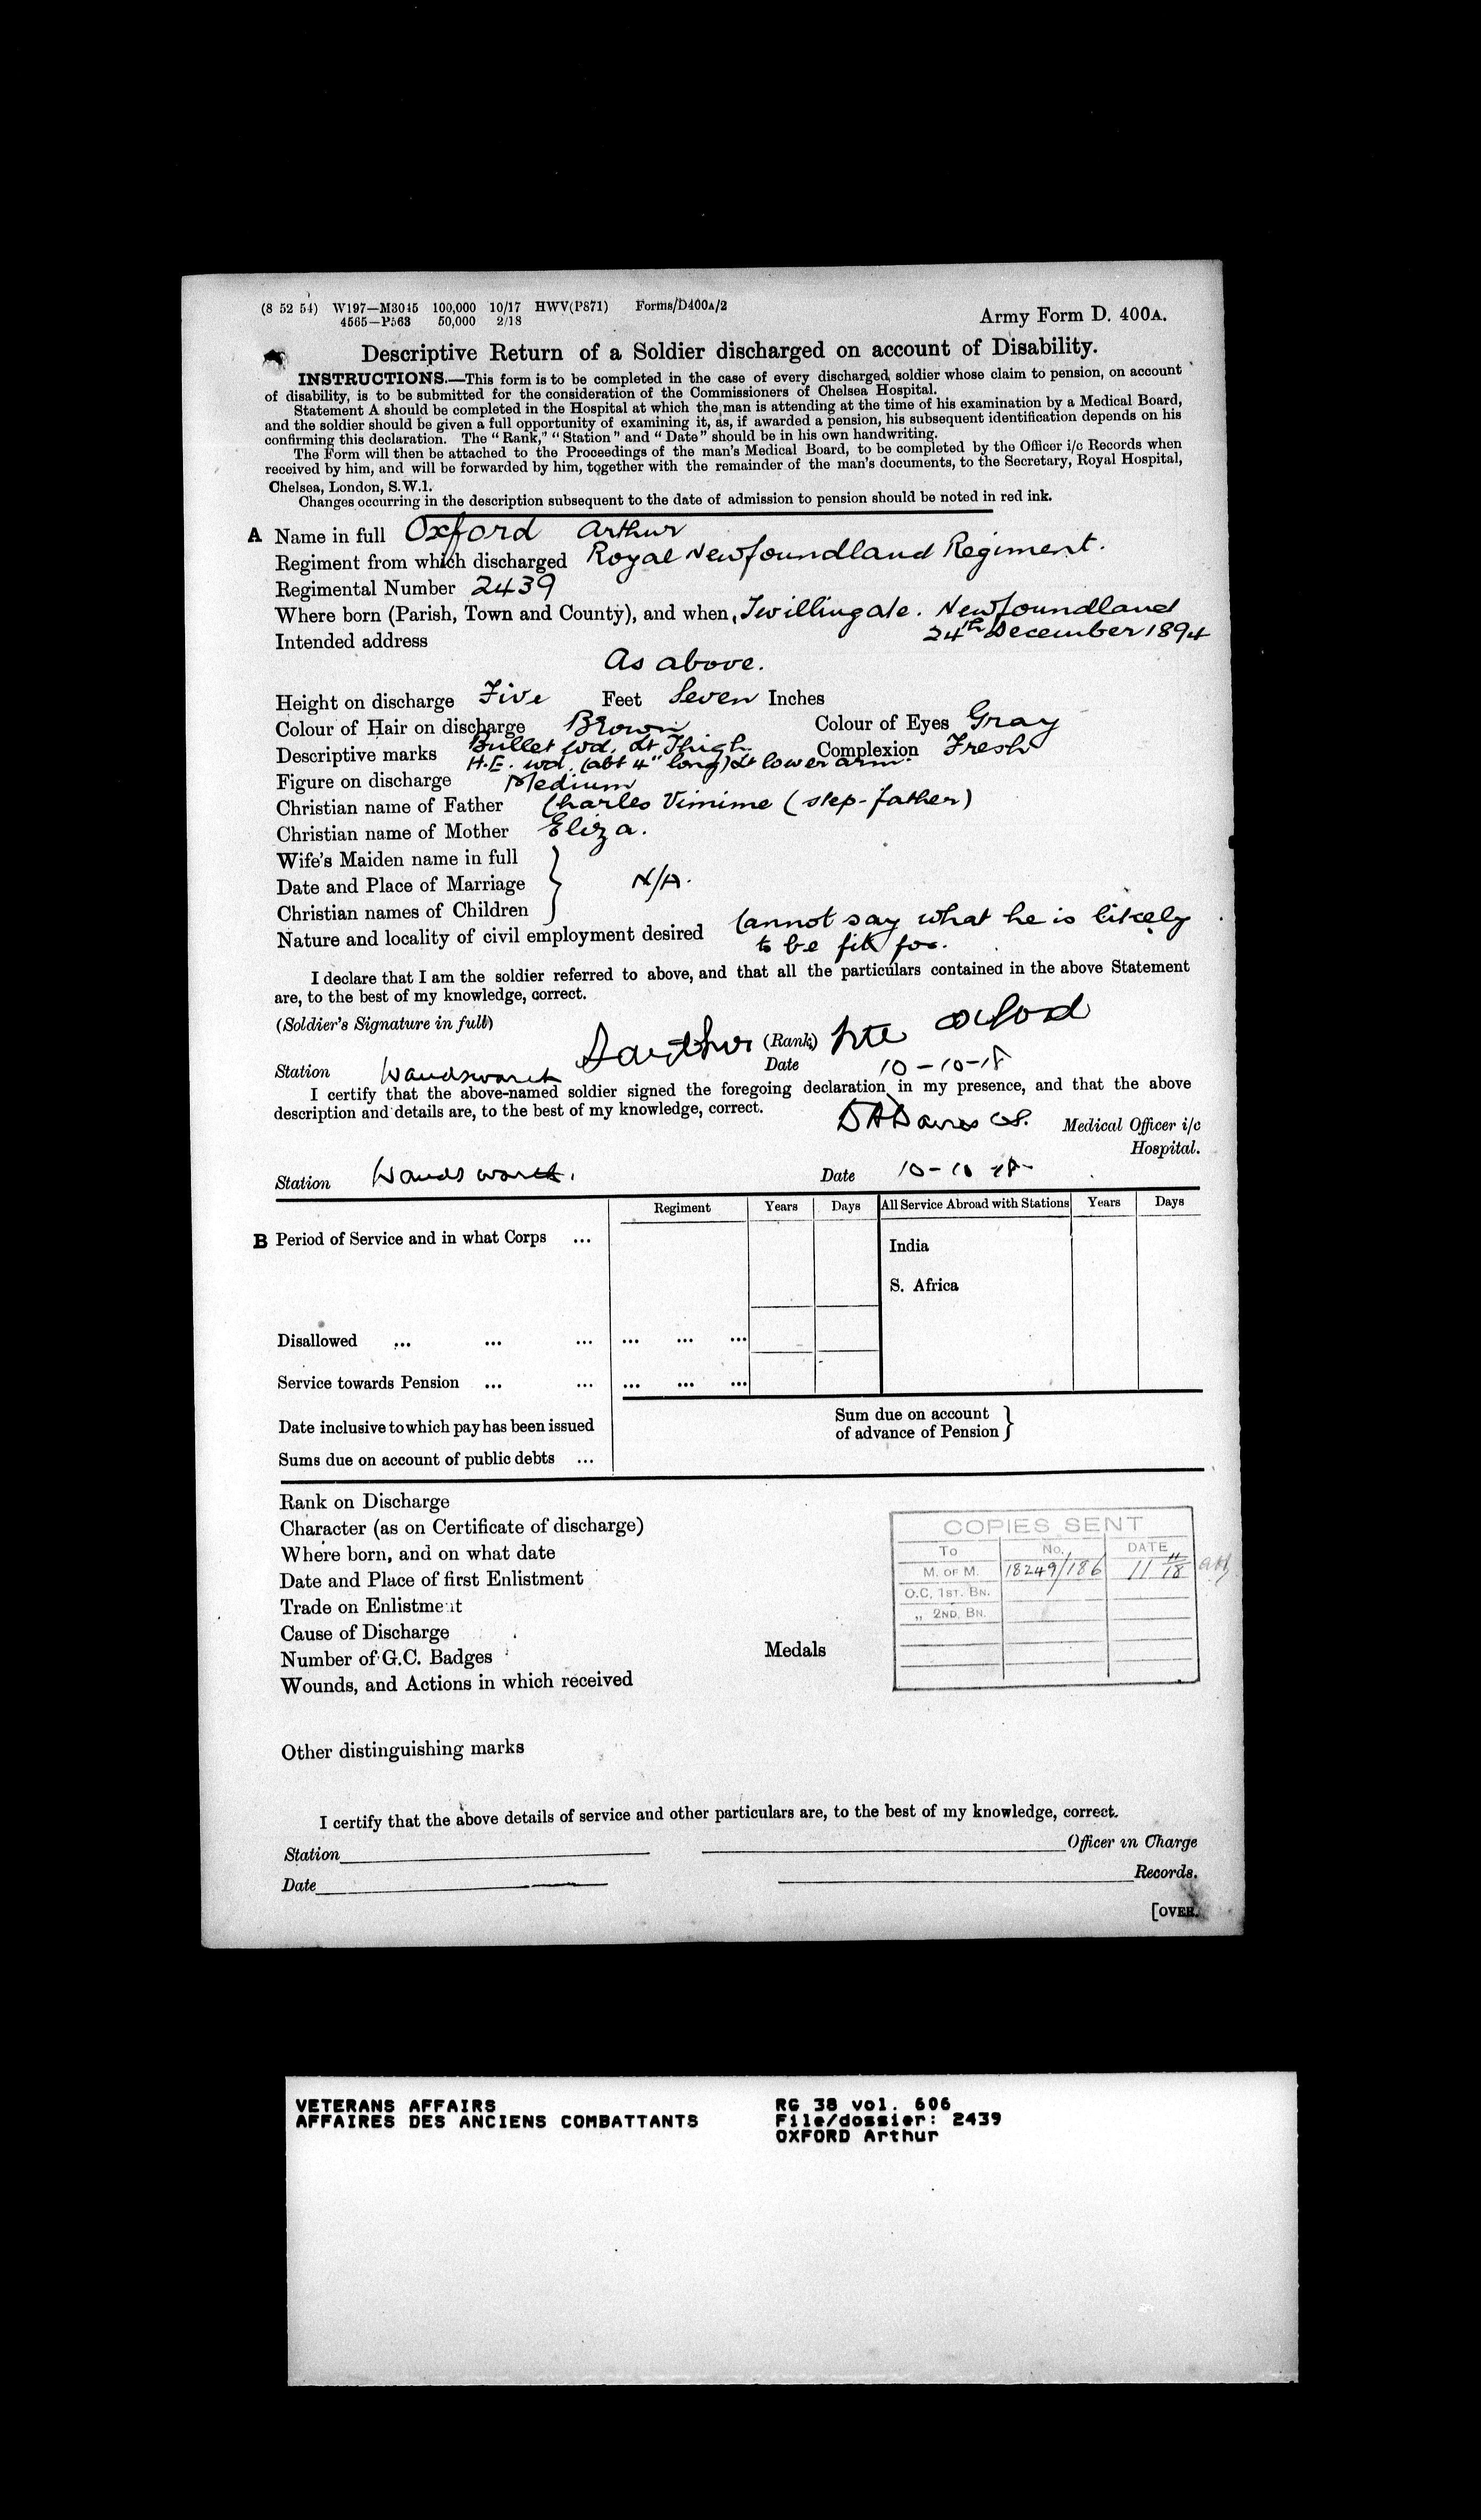 (8 52 54) W197—M3045 100,000 10/17 HWV(P871) Forms/D400A/2
4565—P563 50,000 2/18
Army Form D. 400A.
Descriptive Return of a Soldier discharged on account of Disability.
INSTRUCTIONS.—This form is to be completed in the case of every discharged soldier whose claim to pension, on account
of disability, is to be submitted for the consideration of the Commissioners of Chelsea Hospital.
Statement A should be completed in the Hospital at which the man is attending at the time of his examination by a Medical Board,
and the soldier should be given a full opportunity of examining it, as, if awarded a pension, his subsequent identification depends on his
confirming this declaration. The "Rank," "Station" and "Date" should be in his own handwriting.
The Form will then be attached to the Proceedings of the man's Medical Board, to be completed by the Officer i/c Records when
received by him, and will be forwarded by him, together with the remainder of the man's documents, to the Secretary, Royal Hospital,
Chelsea, London, S.W.1.
Changes occurring in the description subsequent to the date of admission to pension should be noted in red ink.
A Name in full Oxford Arthur
Regiment from which discharged Royal Newfoundland Regiment.
Regimental Number 2439
Where born (Parish, Town and County), and when, Twillingate. Newfoundland
24th December 1894
Intended address
As above.
Height on discharge Five Feet Seven Inches
Colour of Hair on discharge Brown Colour of Eyes Gray
Descriptive marks Bullet wd. Lt Thigh Complexion Fresh
H.E. wd. (abt 4" long) Lt lower arm.
Figure on discharge Medium
Christian name of Father Charles Vimime (step-father)
Christian name of Mother Eliza.
Wife's Maiden name in full
Date and Place of Marriage N/A.
Christian names of Children
Nature and locality of civil employment desired Cannot say what he is likely
to be fit for.
I declare that I am the soldier referred to above, and that all the particulars contained in the above Statement
are, to the best of my knowledge, correct.
(Soldier's Signature in full)
(Rank) Pte
Station Wandsworth Date 10-10-18
I certify that the above-named soldier signed the foregoing declaration in my presence, and that the above
description and details are, to the best of my knowledge, correct.
Medical Officer i/c
Hospital.
Station Wandsworth. Date 10-10-18-
Regiment Years Days All Service Abroad with Stations Years Days
B Period of Service and in what Corps ...
India
S. Africa
Disallowed ... ... ... ... ... ...
Service towards Pension ... ... ... ... ...
Date inclusive to which pay has been issued
Sum due on account
of advance of Pension
Sums due on account of public debts ...
Rank on Discharge
Character (as on Certificate of discharge)
Where born, and on what date
Date and Place of first Enlistment
Trade on Enlistment
Cause of Discharge
Number of G.C. Badges Medals
Wounds, and Actions in which received
COPIES SENT
To No. DATE
M. OF M. 18249/186 11 11/18
O.C. 1ST. BN.
„ 2ND. BN.
Other distinguishing marks
I certify that the above details of service and other particulars are, to the best of my knowledge, correct.
Station Officer in Charge
Date Records.
[OVER.
VETERANS AFFAIRS
AFFAIRES DES ANCIENS COMBATTANTS
RG 38 vol. 606
File/dossier: 2439
OXFORD Arthur